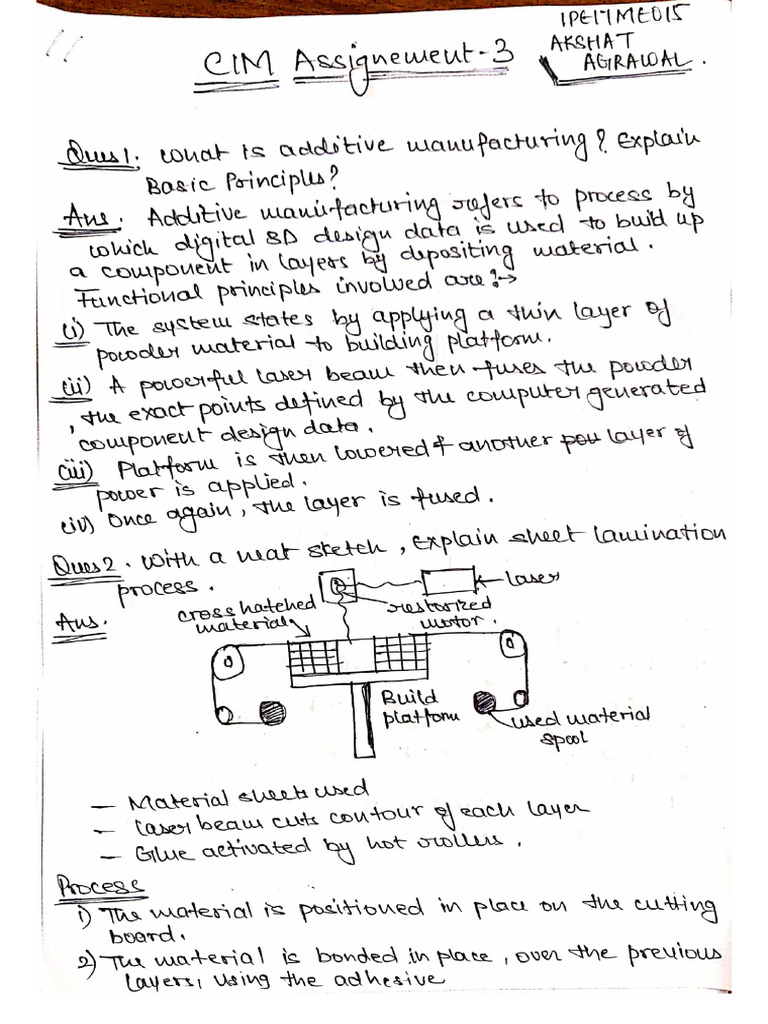 1PE17ME015
AKSHAT
AGRAWAL.
CIM Assignement-3
Ques1. What is additive manufacturing? Explain
Basic Principles?
Ans. Additive manufacturing refers to process by
which digital 3D design data is used to build up
a component in layers by depositing material.
Functional principles involved are:→
(i) The system states by applying a thin layer of
powder material to building platform.
(ii) A powerful laser beam then fuses the powder
, the exact points defined by the computer generated
component design data.
(iii) Platform is then lowered & another layer of
power is applied.
(iv) Once again, the layer is fused.
Ques2. With a neat sketch, explain sheet lamination
process.
Ans.
laser
cross hatched
material
restorized
motor.
Build
platform
used material
spool
- Material sheets used
- Laser beam cuts contour of each layer
- Glue activated by hot rollers.
Process
1) The material is positioned in place on the cutting
board.
2) The material is bonded in place, over the previous
layers, using the adhesive